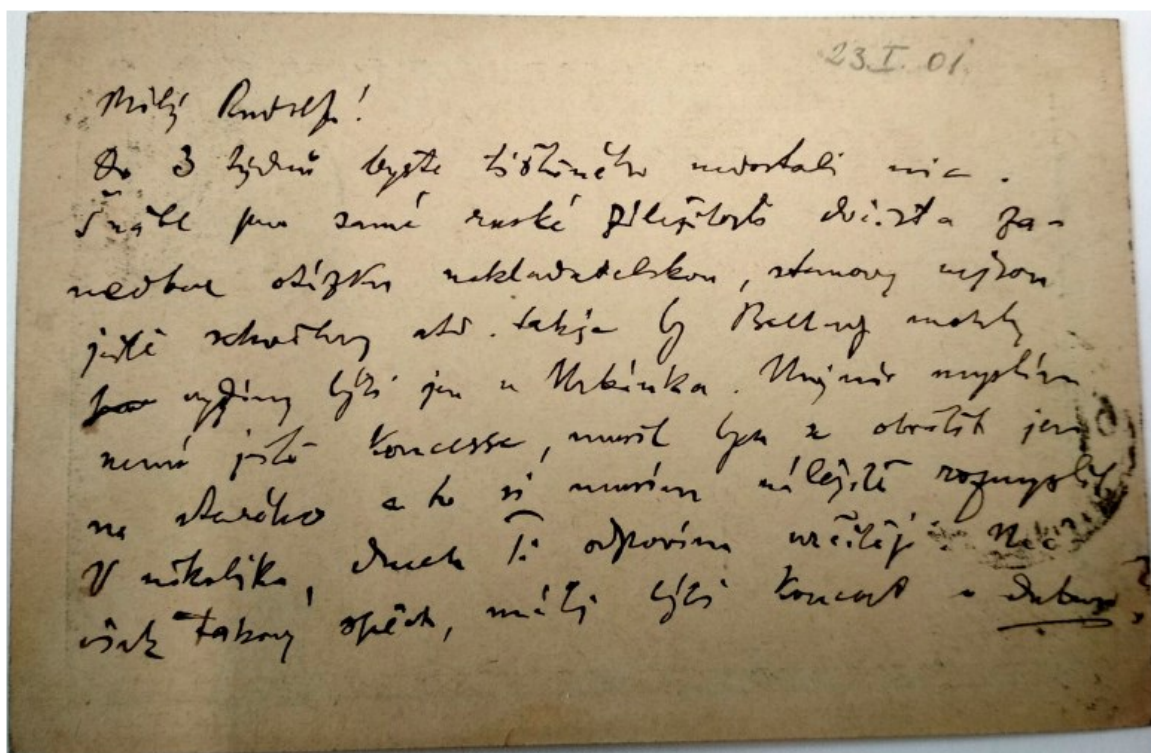 23.I.01.
Milý Rudolfe!
Do 3 týdnů byste tištěného nedostali nic.
pro samé ruské záležitosti za-
nedbal otázku nakladatelskou, stanovy nejsou
ještě schváleny atd. takže by mohly
vydány býti jen u Urbánka. Mojmír myslím
nemá ještě koncesse, musil bych se obrátit jen
na starého a to si musím náležitě rozmyslit.
V několika dnech Ti odpovím určitěji. Nač
však takový spěch, má-li býti koncert v dubnu?